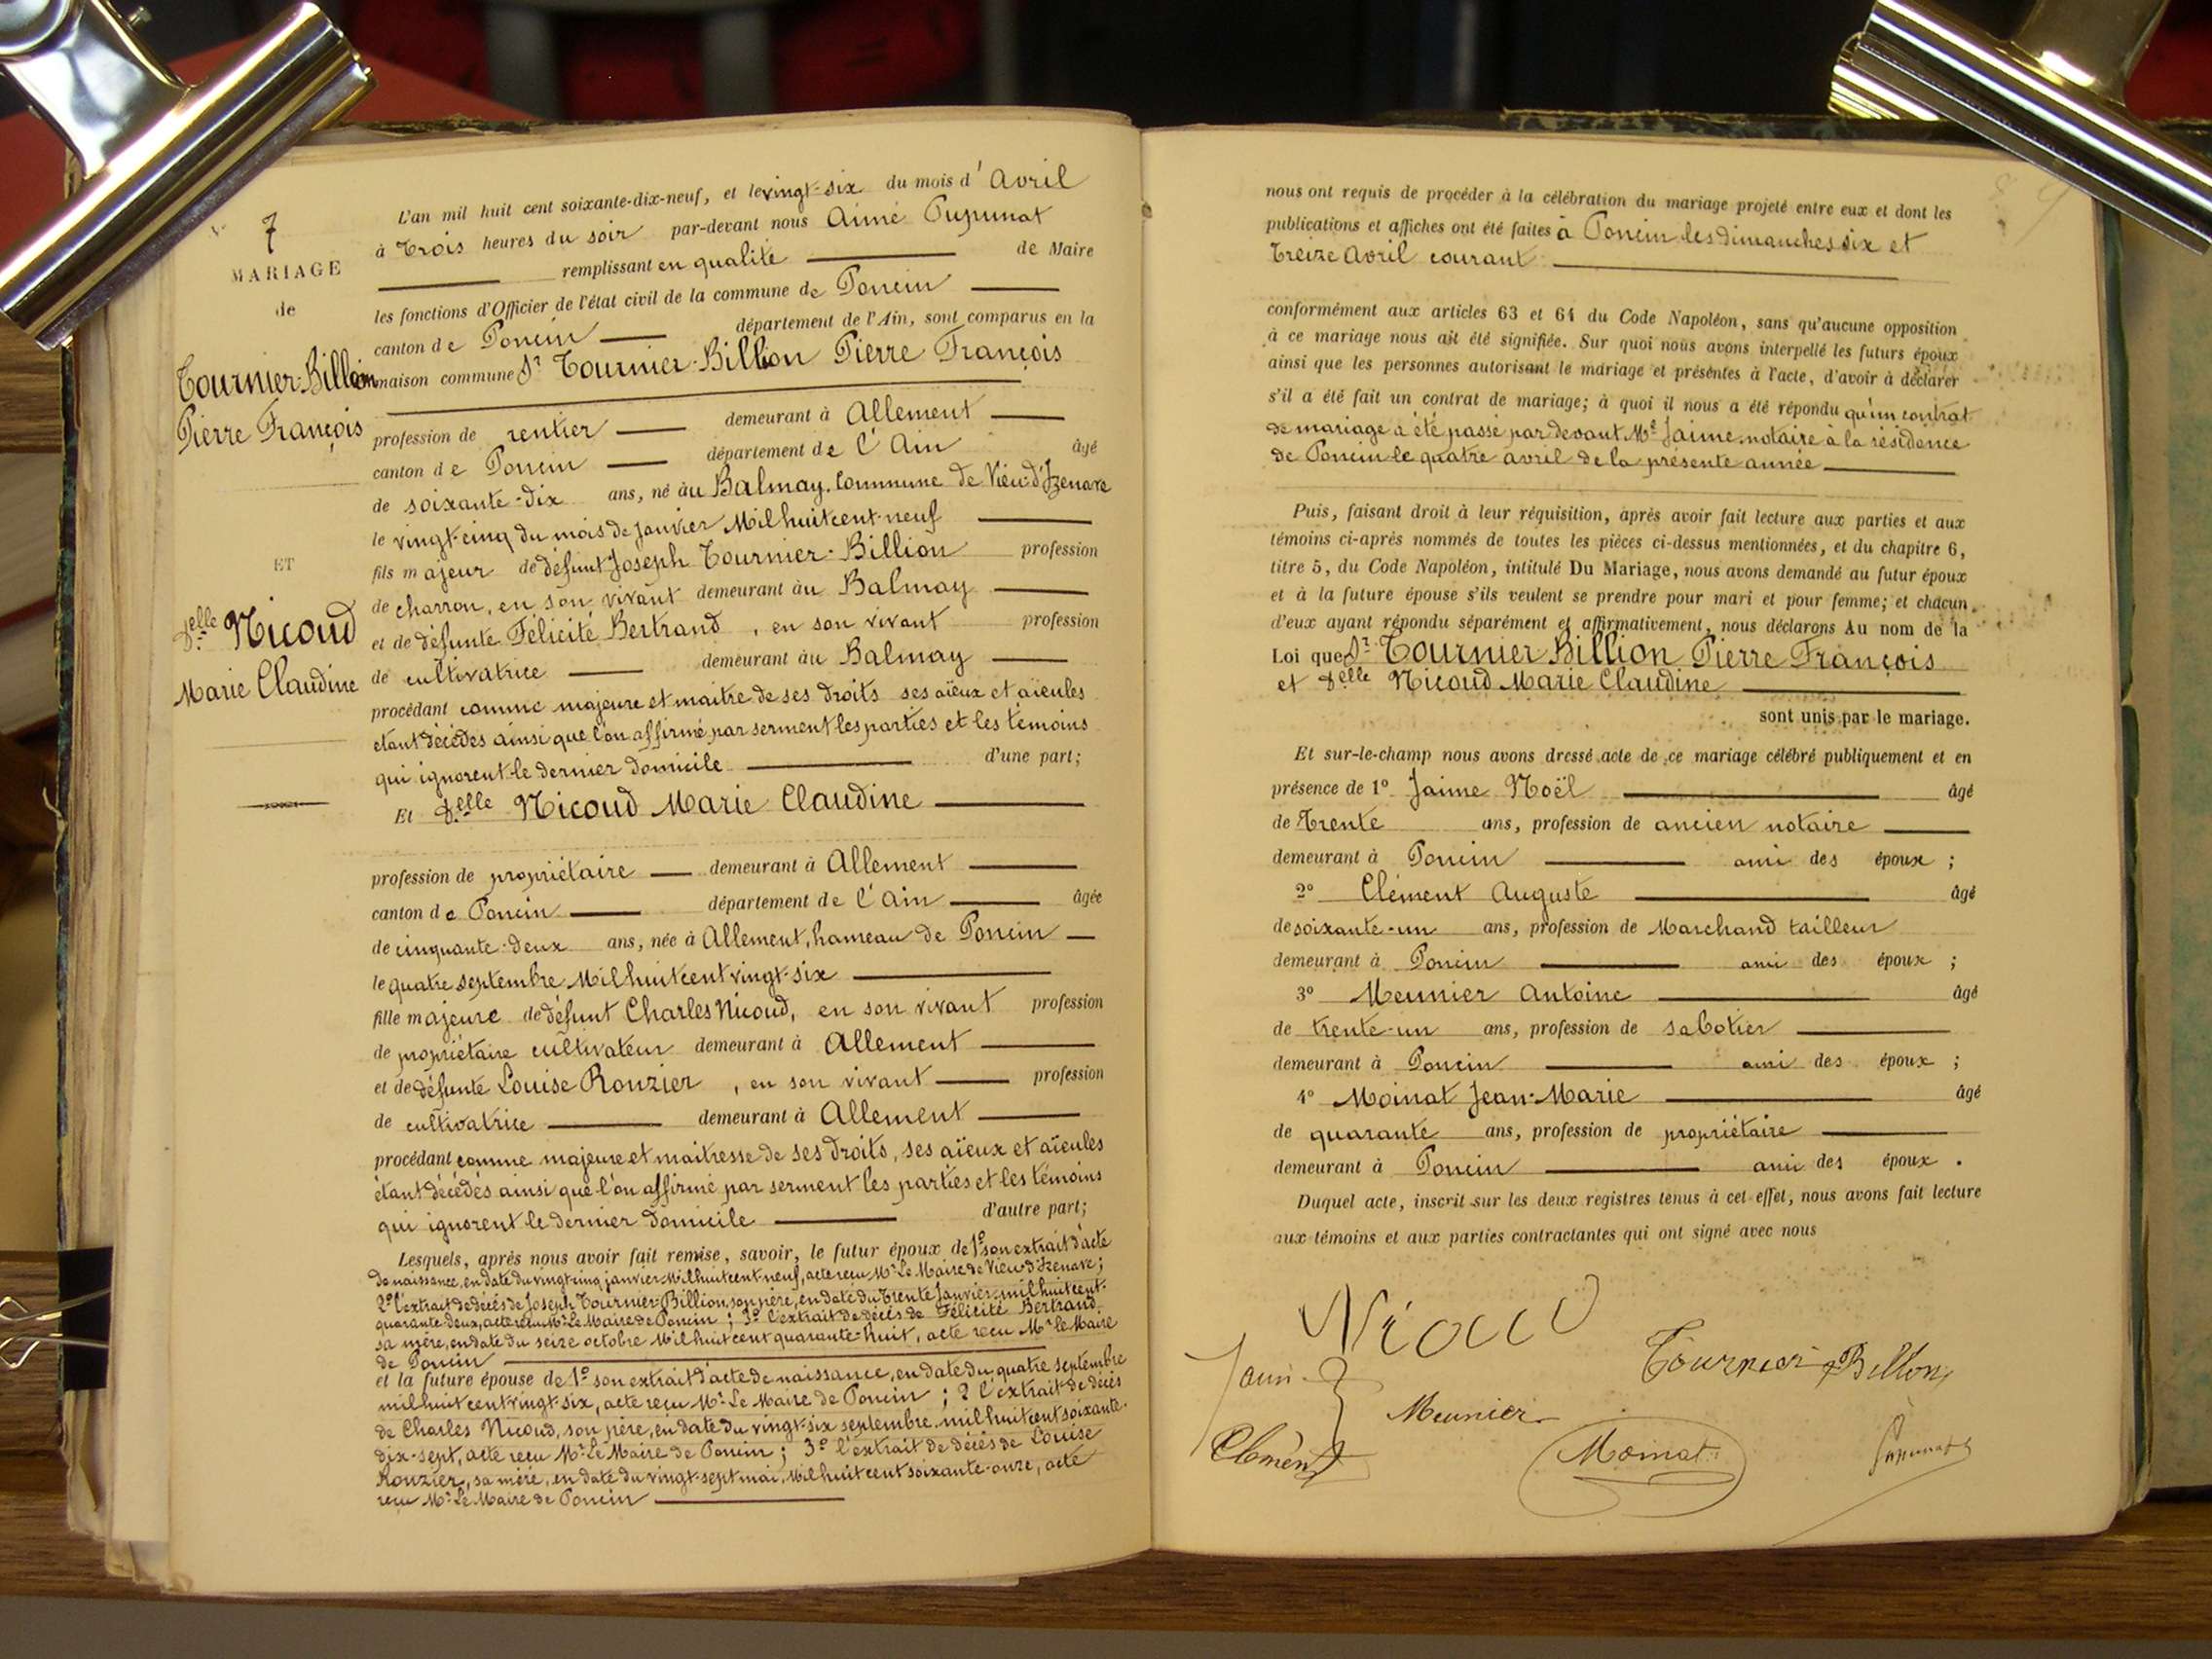 7
MARIAGE
de
Tournier-Billion
Pierre François
ET
Delle Nicoud
Marie Claudine
L'an mil huit cent soixante-dix-neuf, et le vingt-six du mois d'Avril
à Trois heures du soir par-devant nous Aimé Pupunat
remplissant en qualité de Maire
les fonctions d'Officier de l'état civil de la commune de Poncin
canton de Poncin département de l'Ain, sont comparus en la
maison commune Sr Tournier-Billion Pierre François
profession de rentier demeurant à Allement
canton de Poncin département de l'Ain âgé
de soixante-dix ans, né au Balmay, Commune de Vieu-d'Izenave
le vingt-cinq du mois de janvier Mil huit cent neuf
fils majeur de défunt Joseph Tournier-Billion profession
de charron, en son vivant demeurant au Balmay
et de défunte Félicité Bertrand, en son vivant profession
de cultivatrice demeurant au Balmay
procédant comme majeure et maitre de ses droits ses aïeux et aïeules
étant décédés ainsi que l'on affirmé par serment les parties et les témoins
qui ignorent le dernier domicile d'une part;
Et Delle Nicoud Marie Claudine
profession de propriétaire demeurant à Allement
canton de Poncin département de l'Ain âgée
de cinquante-deux ans, née à Allement, hameau de Poncin
le quatre septembre Mil huit cent vingt-six
fille majeure de défunt Charles Nicoud, en son vivant profession
de propriétaire cultivateur demeurant à Allement
et de défunte Louise Ronzier, en son vivant profession
de cultivatrice demeurant à Allement
procédant comme majeure et maitresse de ses droits, ses aïeux et aïeules
étant décédés ainsi que l'on affirmé par serment les parties et les témoins
qui ignorent le dernier domicile d'autre part;
Lesquels, après nous avoir fait remise, savoir, le futur époux de 1° son extrait d'acte
de naissance, en date du vingt-cinq janvier Mil huit cent neuf, acte reçu Mr Le Maire de Vieu-d'Izenave;
2° l'extrait de décès de Joseph Tournier-Billion, son père, en date du trente Janvier mil huit cent
quarante-deux, acte reçu Mr Le Maire de Poncin; 3° l'extrait de décès de Félicité Bertrand,
sa mère, en date du seize octobre Mil huit cent quarante-huit, acte reçu Mr le Maire
de Poncin
et la future épouse de 1° son extrait d'acte de naissance, en date du quatre septembre
mil huit cent vingt-six, acte reçu Mr Le Maire de Poncin; 2° l'extrait de décès
de Charles Nicoud, son père, en date du vingt-six septembre mil huit cent soixante-
dix-sept, acte reçu Mr Le Maire de Poncin; 3° l'extrait de décès de Louise
Ronzier, sa mère, en date du vingt-sept mai, Mil huit cent soixante-onze, acte
reçu Mr Le Maire de Poncin
nous ont requis de procéder à la célébration du mariage projeté entre eux et dont les
publications et affiches ont été faites à Poncin les dimanches six et
treize Avril courant
conformément aux articles 63 et 64 du Code Napoléon, sans qu'aucune opposition
à ce mariage nous ait été signifiée. Sur quoi nous avons interpellé les futurs époux
ainsi que les personnes autorisant le mariage et présentes à l'acte, d'avoir à déclarer
s'il a été fait un contrat de mariage; à quoi il nous a été répondu qu'un contrat
de mariage a été passé par devant Me Jaime, notaire à la résidence
de Poncin le quatre avril de la présente année
Puis, faisant droit à leur réquisition, après avoir fait lecture aux parties et aux
témoins ci-après nommés de toutes les pièces ci-dessus mentionnées, et du chapitre 6,
titre 5, du Code Napoléon, intitulé Du Mariage, nous avons demandé au futur époux
et à la future épouse s'ils veulent se prendre pour mari et pour femme; et chacun
d'eux ayant répondu séparément et affirmativement, nous déclarons Au nom de la
Loi que Sr Tournier Billion Pierre François
et Delle Nicoud Marie Claudine
sont unis par le mariage.
Et sur-le-champ nous avons dressé acte de ce mariage célébré publiquement et en
présence de 1° Jaime Noël âgé
de Trente ans, profession de ancien notaire
demeurant à Poncin ami des époux;
2° Clément Auguste âgé
de soixante-un ans, profession de Marchand tailleur
demeurant à Poncin ami des époux;
3° Meunier Antoine âgé
de trente-un ans, profession de sabotier
demeurant à Poncin ami des époux;
4° Moinat Jean-Marie âgé
de quarante ans, profession de propriétaire
demeurant à Poncin ami des époux.
Duquel acte, inscrit sur les deux registres tenus à cet effet, nous avons fait lecture
aux témoins et aux parties contractantes qui ont signé avec nous
Tournier-Billion
Meunier
Clément
Moinat
Pupunat